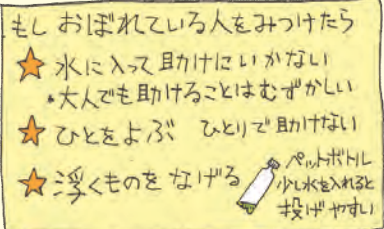 もし おぼれている人をみつけたら
水に入って助けにいかない
・大人でも助けることはむずかしい
ひとをよぶ ひとりで助けない
浮くものを なげる
ペットボトル
少し水を入れると
投げやすい